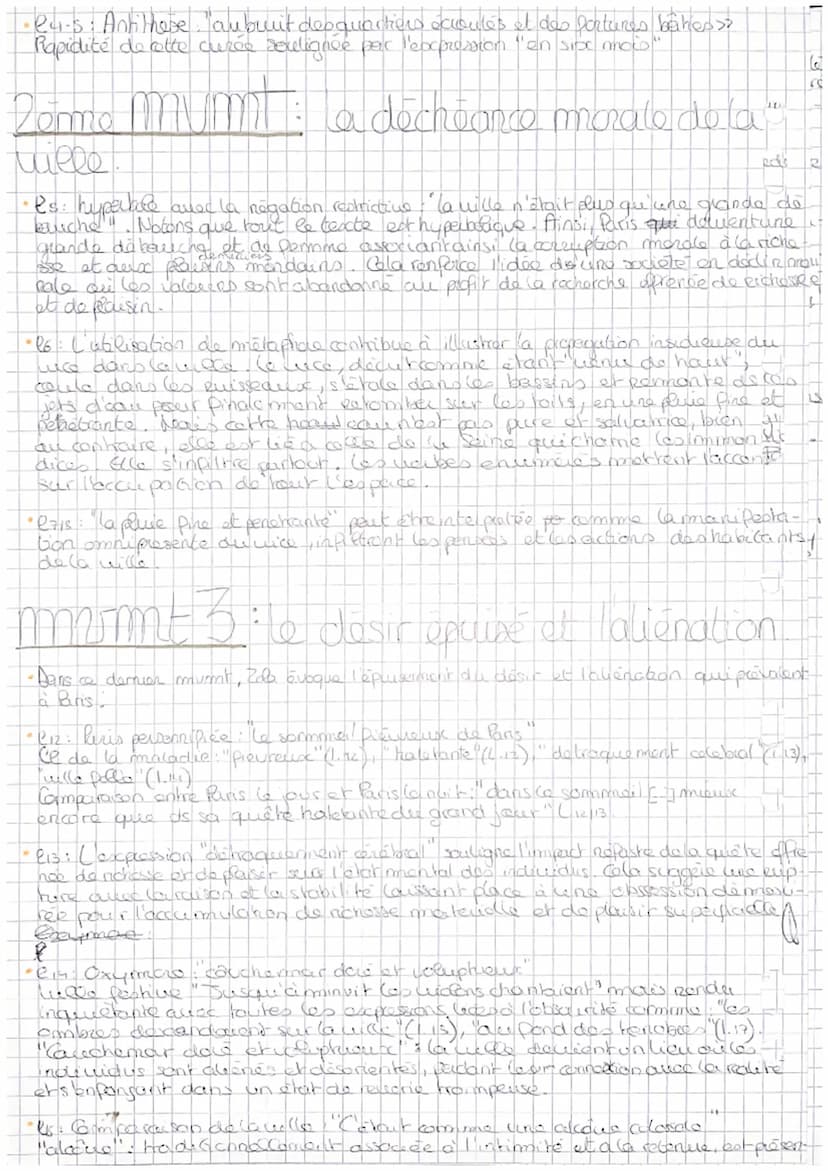 • l4-5 : Antithèse : "au bruit des quartiers écroulés et des fortunes bâties >>
Rapidité de cette curée soulignée par l'expression "en six mois"
2ème mvmt : la déchéance morale de la
ville.
• l5 : hyperbole avec la négation restrictive : "la ville n'était plus qu'une grande dé
bauche". Notons que tout le texte est hyperbolique. Ainsi, Paris devient une
grande débauche et de femme associant ainsi la corruption morale à la riche
sse et aux plaisirs mondains. Cela renforce l'idée d'une société en déclin mo
rale où les valeurs sont abandonné au profit de la recherche effrénée de richesse
et de plaisir.
• l6 : L'utilisation de métaphore contribue à illustrer la propagation insidieuse du
vice dans la ville. Le vice, décrit comme étant "venu de haut",
coule dans les ruisseaux, s'étale dans les bassins et remonte ds les
jets d'eau pour finalement retomber sur les toits, en une pluie fine et
pénétrante. Mais cette eau n'est pas pure et salvatrice, bien
au contraire, elle est lié à celle de la Seine qui charrie les immon
dices. Elle s'infiltre partout. Les verbes énumérés mettent l'accent
sur l'occupation de tout l'espace.
• l7/8 : "la pluie fine et pénétrante" peut être interprétée comme la manifesta-
tion omniprésente du vice, infiltrant les pensées et les actions des habitants
de la ville.
mvmt 3 : le désir épuisé et l'aliénation
• Dans ce dernier mvmt, Zola évoque l'épuisement du désir et l'aliénation qui prévalent
à Paris.
• l12 : Paris personnifiée : "le sommeil fiévreux de Paris"
de la maladie : "fiévreux" (l.12), "haletante" (l.13), "détraquement cérébral" (l.13),
"ville folle" (l.14)
Comparaison entre Paris le jour et Paris la nuit : "dans le sommeil [...] mieux
encore que ds sa quête haletante du grand jour" (12/13
• l13 : L'expression "détraquement cérébral" souligne l'impact néfaste de la quête effré
née de richesse et de plaisir sur l'état mental des individus. Cela suggère une rup-
ture avec la raison et la stabilité laissant place à une obsession démesu-
rée pour l'accumulation de richesse matérielle et de plaisir superficielle
• l14 : Oxymore : "cauchemar doré et voluptueux"
Ville festive "Jusqu'à minuit les violons chantaient" mais rendu
inquiétante avec toutes les expressions liées à l'obscurité comme : "les
ombres descendaient sur la ville" (l.15), "au fond des ténèbres" (l.17).
"Cauchemar doré et voluptueux" : la ville devient un lieu où les
individus sont aliénés et désorientés, perdant leur connexion avec la réalité
et s'enfonçant dans un état de rêverie trompeuse.
• Comparaison de la ville : "C'était comme une alcôve colossale"
"alcôve" : traditionnellement associée à l'intimité et à la retenue, est présen-